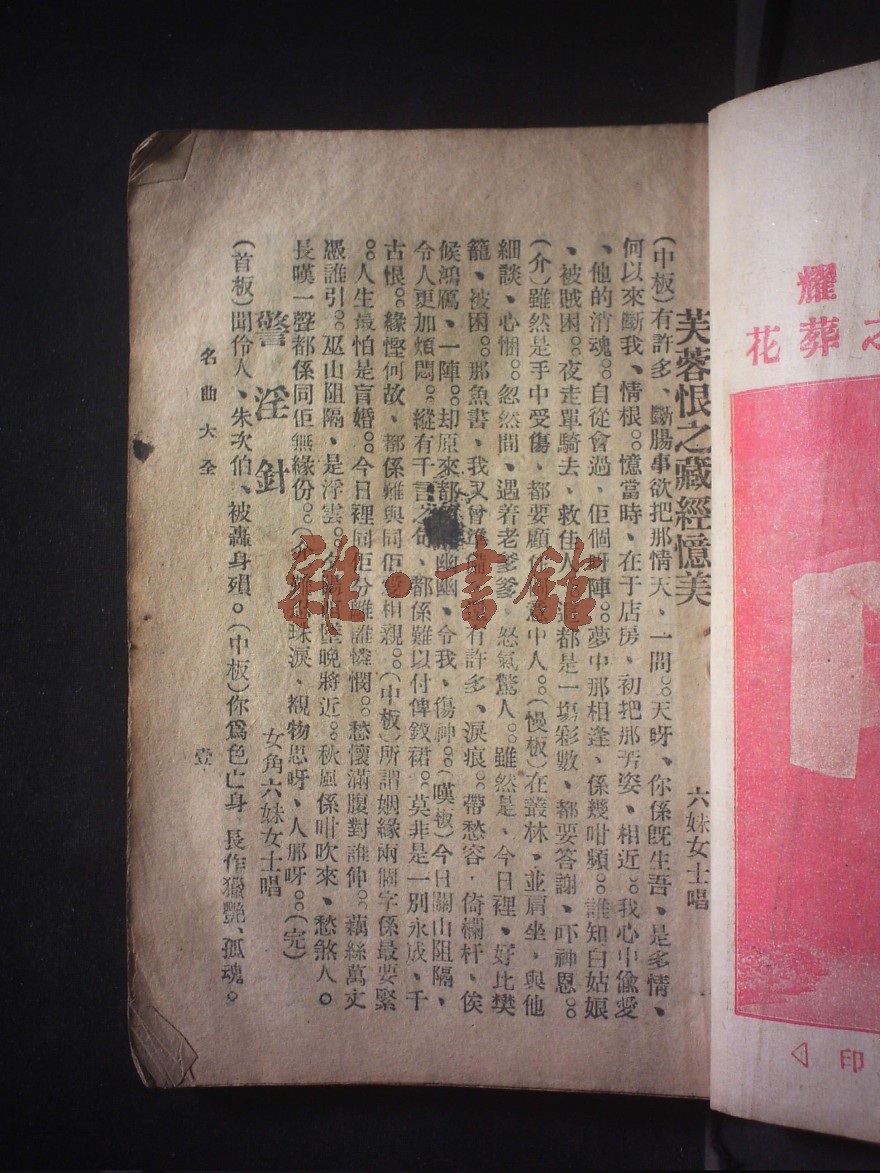 芙蓉恨之藏經憶美
六妹女士唱
(中板)有許多、斷腸事欲把那情天、一問○○天呀、你係既生吾、是多情、
何以來斷我、情根○○憶當時、在于店房、初把那芳姿、相近○○我心中偷愛
、他的消魂○○自從會過、佢個呀陣○○夢中那相逢、係幾咁頻○○誰知白姑娘
、被賊困○○夜走單騎去、救佳人 都是一塲彩數、都要答謝、吓神恩○○
(介)雖然是手中受傷、都要顧住 意中人○○(慢板)在叢林、並肩坐、與他
細談、心悃○○忽然間、遇着老爹爹、怒氣驚人○○雖然是、今日裡、好比樊
籠、被困○○那魚書、我又曾準備 有許多、淚痕○○帶愁容、倚欄杆、俟
候鴻鴈、一陣○○却原來都 幽幽、令我、傷神○○(嘆板)今日關山阻隔、
令人更加煩悶○○縱有千言之句、都係難以付俾釵裙○○莫非是一別永成、千
古恨○○緣慳何故、都係難與同佢 相親○○(中板)所謂姻緣兩個字係最要緊
○○人生最怕是盲婚○○今日裡同佢分離誰憐憫○○愁懷滿腹對誰伸○○藕絲萬丈
憑誰引○○巫山阻隔、是浮雲○○夕陽 墜晚將近○○秋風係咁吹來、愁煞人○
長嘆一聲都係同佢無緣份○○ 珠淚、覩物思呀、人那呀○○(完)
警淫針
女角六妹女士唱
(首板)聞伶人、朱次伯、被轟身殞○(中板)你爲色亡身、長作獵艷、孤魂○
名曲大全
壹
耀
之葬花
印
雜·書館